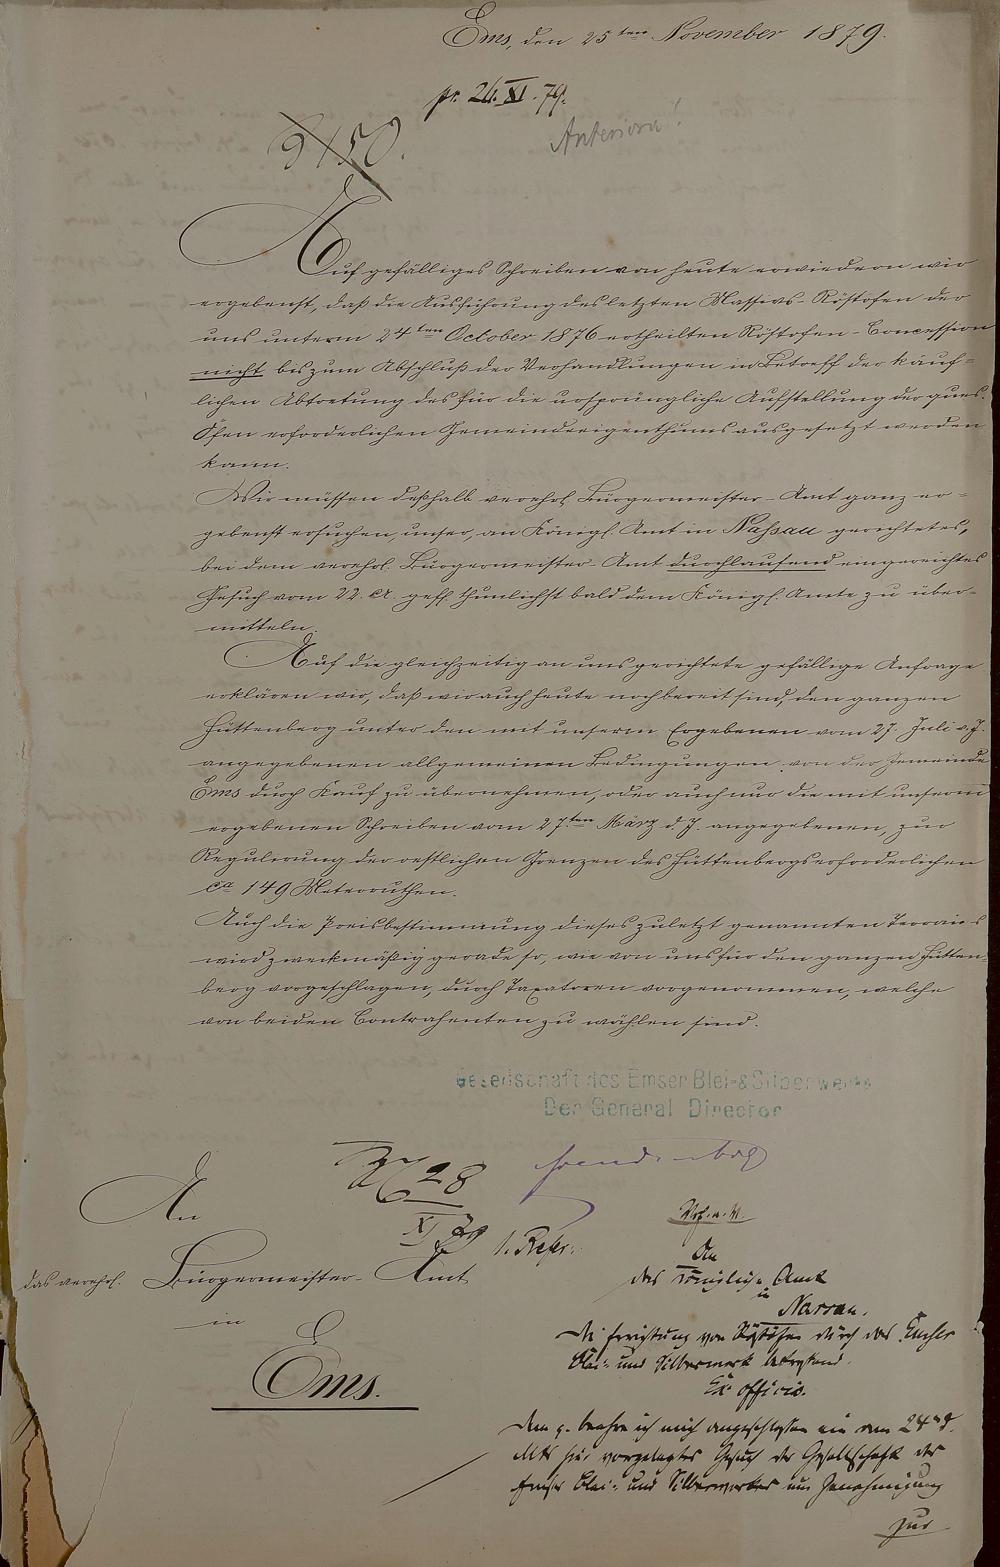 Ems, den 25ten November 1879.
pr. 26. XI. 79.
Anteriora!
9150.
Auf gefälliges Schreiben von heute erwiedern wir
ergebenst, daß die Ausführung des letzten Massivs-Röstofen der
uns unterm 24ten October 1876 ertheilten Röstofen-Concession
nicht bis zum Abschluß der Verhandlungen in Betreff der käuf-
lichen Abtretung des für die ursprüngliche Aufstellung der ques.
Öfen erforderlichen Gemeindeeigenthums ausgesetzt werden
kann.
Wir müssen deßhalb verehrl. Bürgermeister-Amt ganz er-
gebenst ersuchen, unser, an Königl. Amt in Nassau gerichtetes,
bei dem verehrl. Bürgermeister-Amt durchlaufend eingereichtes
Gesuch vom 22. ct. geff. thunlichst bald dem Königl. Amte zu über-
mitteln.
Auf die gleichzeitig an uns gerichtete gefällige Anfrage
erklären wir, daß wir auch heute noch bereit sind, den ganzen
Hüttenberg unter den mit unserm Ergebenen vom 27. Juli v. J.
angegebenen allgemeinen Bedingungen von der Gemeinde
Ems durch Kauf zu übernehmen, oder auch nur die mit unserm
ergebenen Schreiben vom 27ten März d. J. angegebenen, zur
Regulirung der oestlichen Grenzen des Hüttenbergs erforderlichen
ca 149 Meterruthen.
Auch die Preisbestimmung dieses zuletzt genannten Terrains
wird zweckmäßig gerade so, wie von uns für den ganzen Hütten-
berg vorgeschlagen, durch Taxatoren vorgenommen, welche
von beiden Contrahenten zu wählen sind.
Gesellschaft des Emser Blei- & Silberwerks
Der General Director
An
das verehrl. Bürgermeister-Amt
in
Ems.
28
XI 79
1. Refer.
An
das Königliche Amt
in
Nassau.
die Errichtung von Röstöfen durch das Emser
Blei- und Silberwerk betreffend.
Ex officio.
dem g. beehre ich mich angeschlossen ein am 24ten d.
Mts hier vorgelegtes Gesuch der Gesellschaft des
Emser Blei- und Silberwerkes um Genehmigung
zur